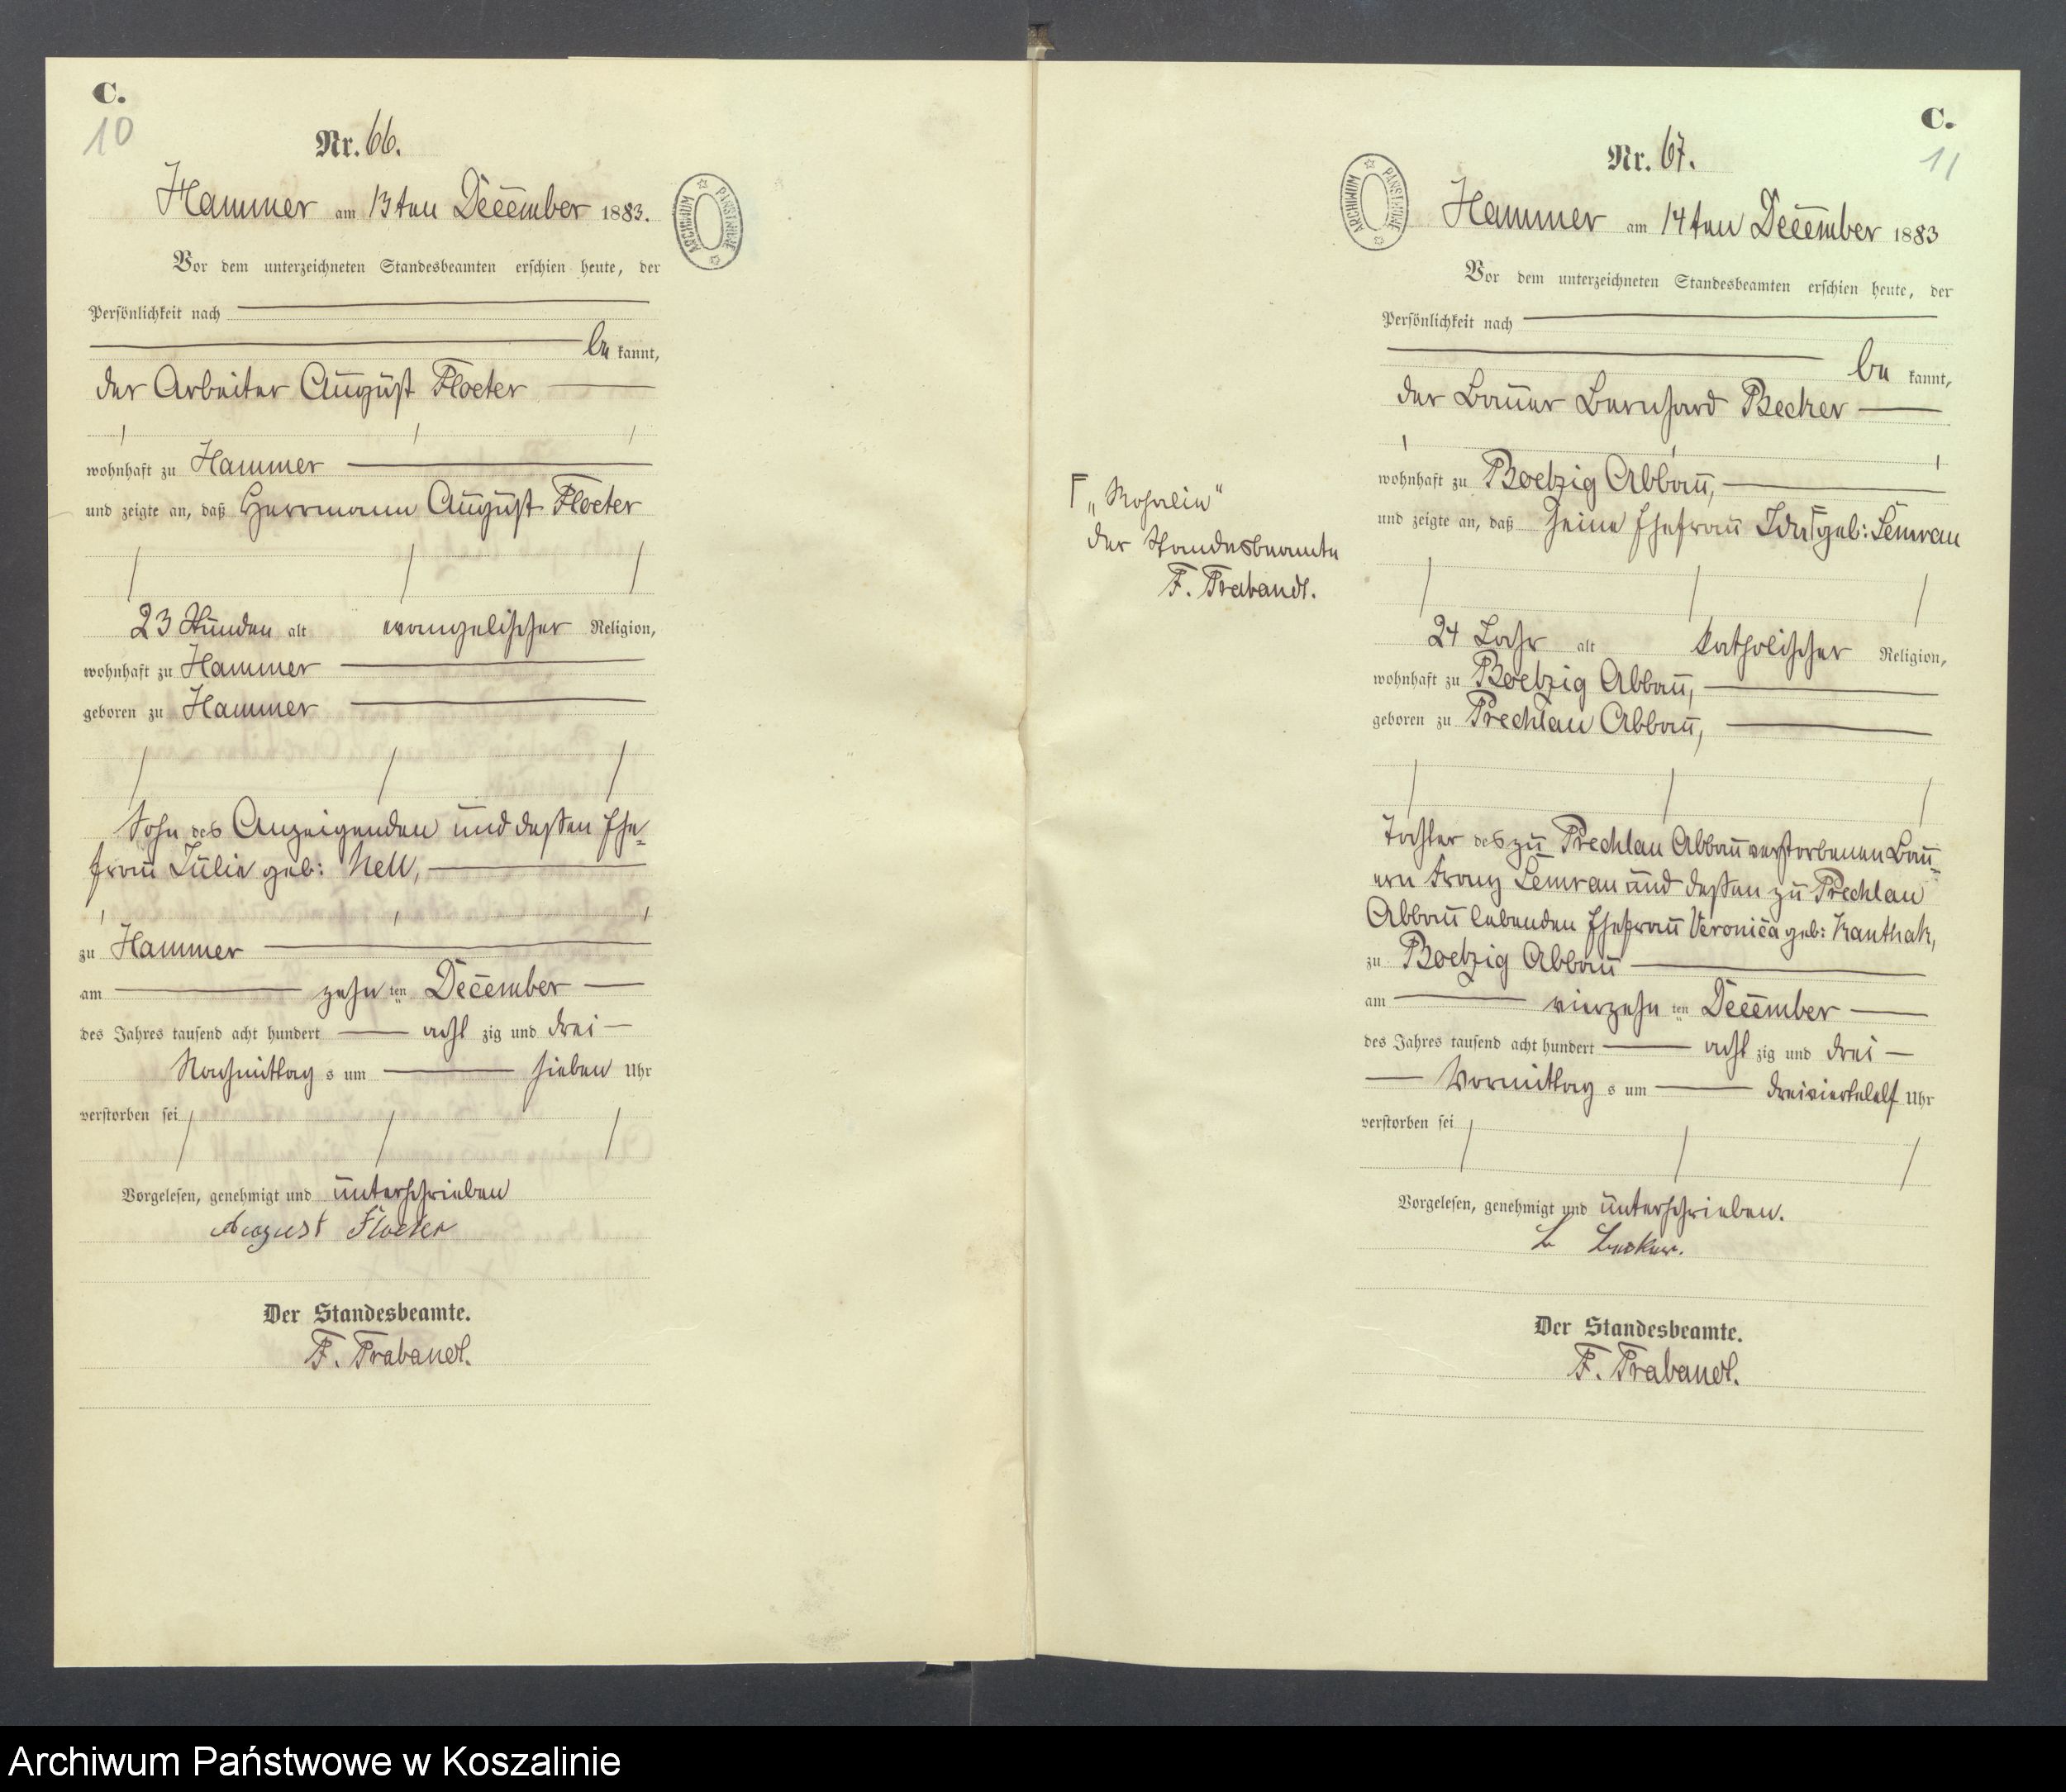 C.
10
Nr. 66.
Hammer am 13ten December 1883.
Vor dem unterzeichneten Standesbeamten erschien heute, der
Persönlichkeit nach
be kannt,
der Arbeiter August Floeter
wohnhaft zu Hammer
und zeigte an, daß Herrmann August Floeter
23 Stunden alt evangelischer Religion,
wohnhaft zu Hammer
geboren zu Hammer
Sohn des Anzeigenden und dessen Ehe=
frau Julie geb: Nell,
zu Hammer
am zehn ten December
des Jahres tausend acht hundert acht zig und drei
Nachmittag s um sieben Uhr
verstorben sei
Vorgelesen, genehmigt und unterschrieben
August Floeter
Der Standesbeamte.
F. Trabandt.
ARCHIWUM PAŃSTWOWE
C.
11
Nr. 67.
ARCHIWUM PAŃSTWOWE
Hammer am 14ten December 1883
Vor dem unterzeichneten Standesbeamten erschien heute, der
Persönlichkeit nach
be kannt,
der Bauer Bernhard Becker
wohnhaft zu Boelzig Abbau,
und zeigte an, daß seine Ehefrau Ida Γ geb: Semrau
Γ „Rosalie“
der Standesbeamte
F. Trabandt.
24 Jahr alt katholischer Religion,
wohnhaft zu Boelzig Abbau,
geboren zu Prechlau Abbau,
Tochter des zu Prechlau Abbau verstorbenen Bau=
ern Franz Semrau und dessen zu Prechlau
Abbau lebenden Ehefrau Veronica geb: Kanthak,
zu Boelzig Abbau
am vierzehn ten December
des Jahres tausend acht hundert acht zig und drei
Vormittag s um dreiviertelelf Uhr
verstorben sei
Vorgelesen, genehmigt und unterschrieben.
B Becker.
Der Standesbeamte.
F. Trabandt.
Archiwum Państwowe w Koszalinie